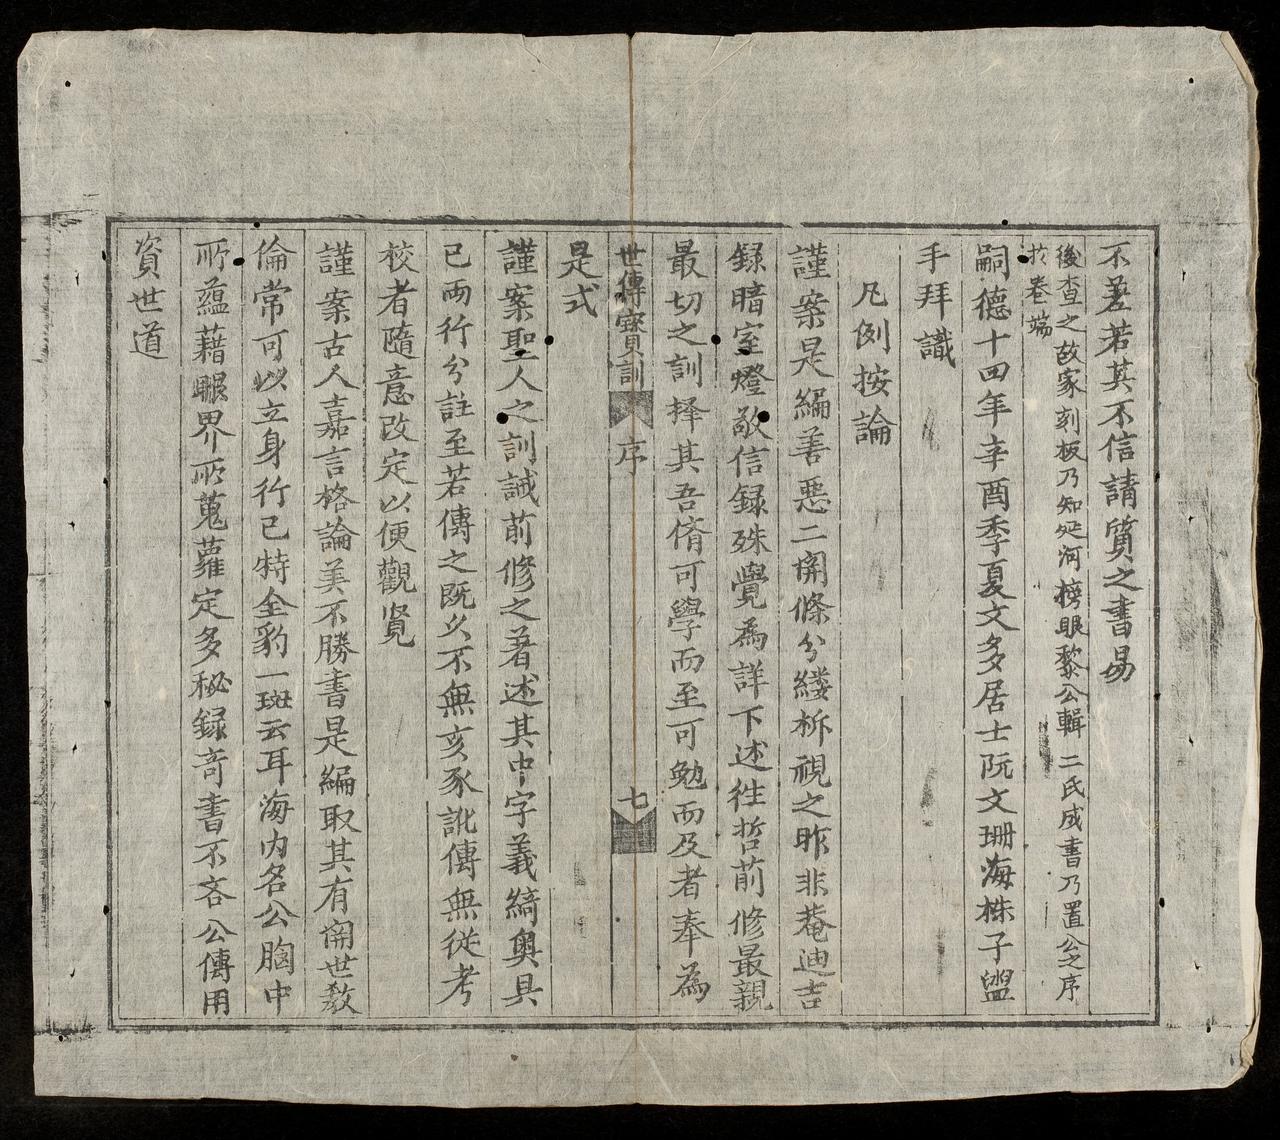 不差若其不信請質之書昜
後查之故家刻板乃知延河榜眼黎公輯二氏成書乃置公之序
扵卷端
嗣德十四年辛酉季夏文多居士阮文珊海株子盥
手拜識
凡例按論
謹案是編善惡二関條分縷柝視之昨非菴迪吉
録暗室燈敬信録殊覺為詳下述徃哲前修最親
最切之訓擇其吾脩可學而至可勉而及者奉為
世傳寶訓 序 七
是式
謹案聖人之訓誡前修之著述其中字義綺奧具
已両行分註至若傳之既久不無亥豕訛傳無從考
校者隨意改定以便觀覽
謹案古人嘉言格論美不勝書是編取其有関世教
倫常可以立身行己特全豹一斑云耳海内名公胸中
所蘊藉眼界所蒐蘿定多秘録奇書不吝公傳用
資世道